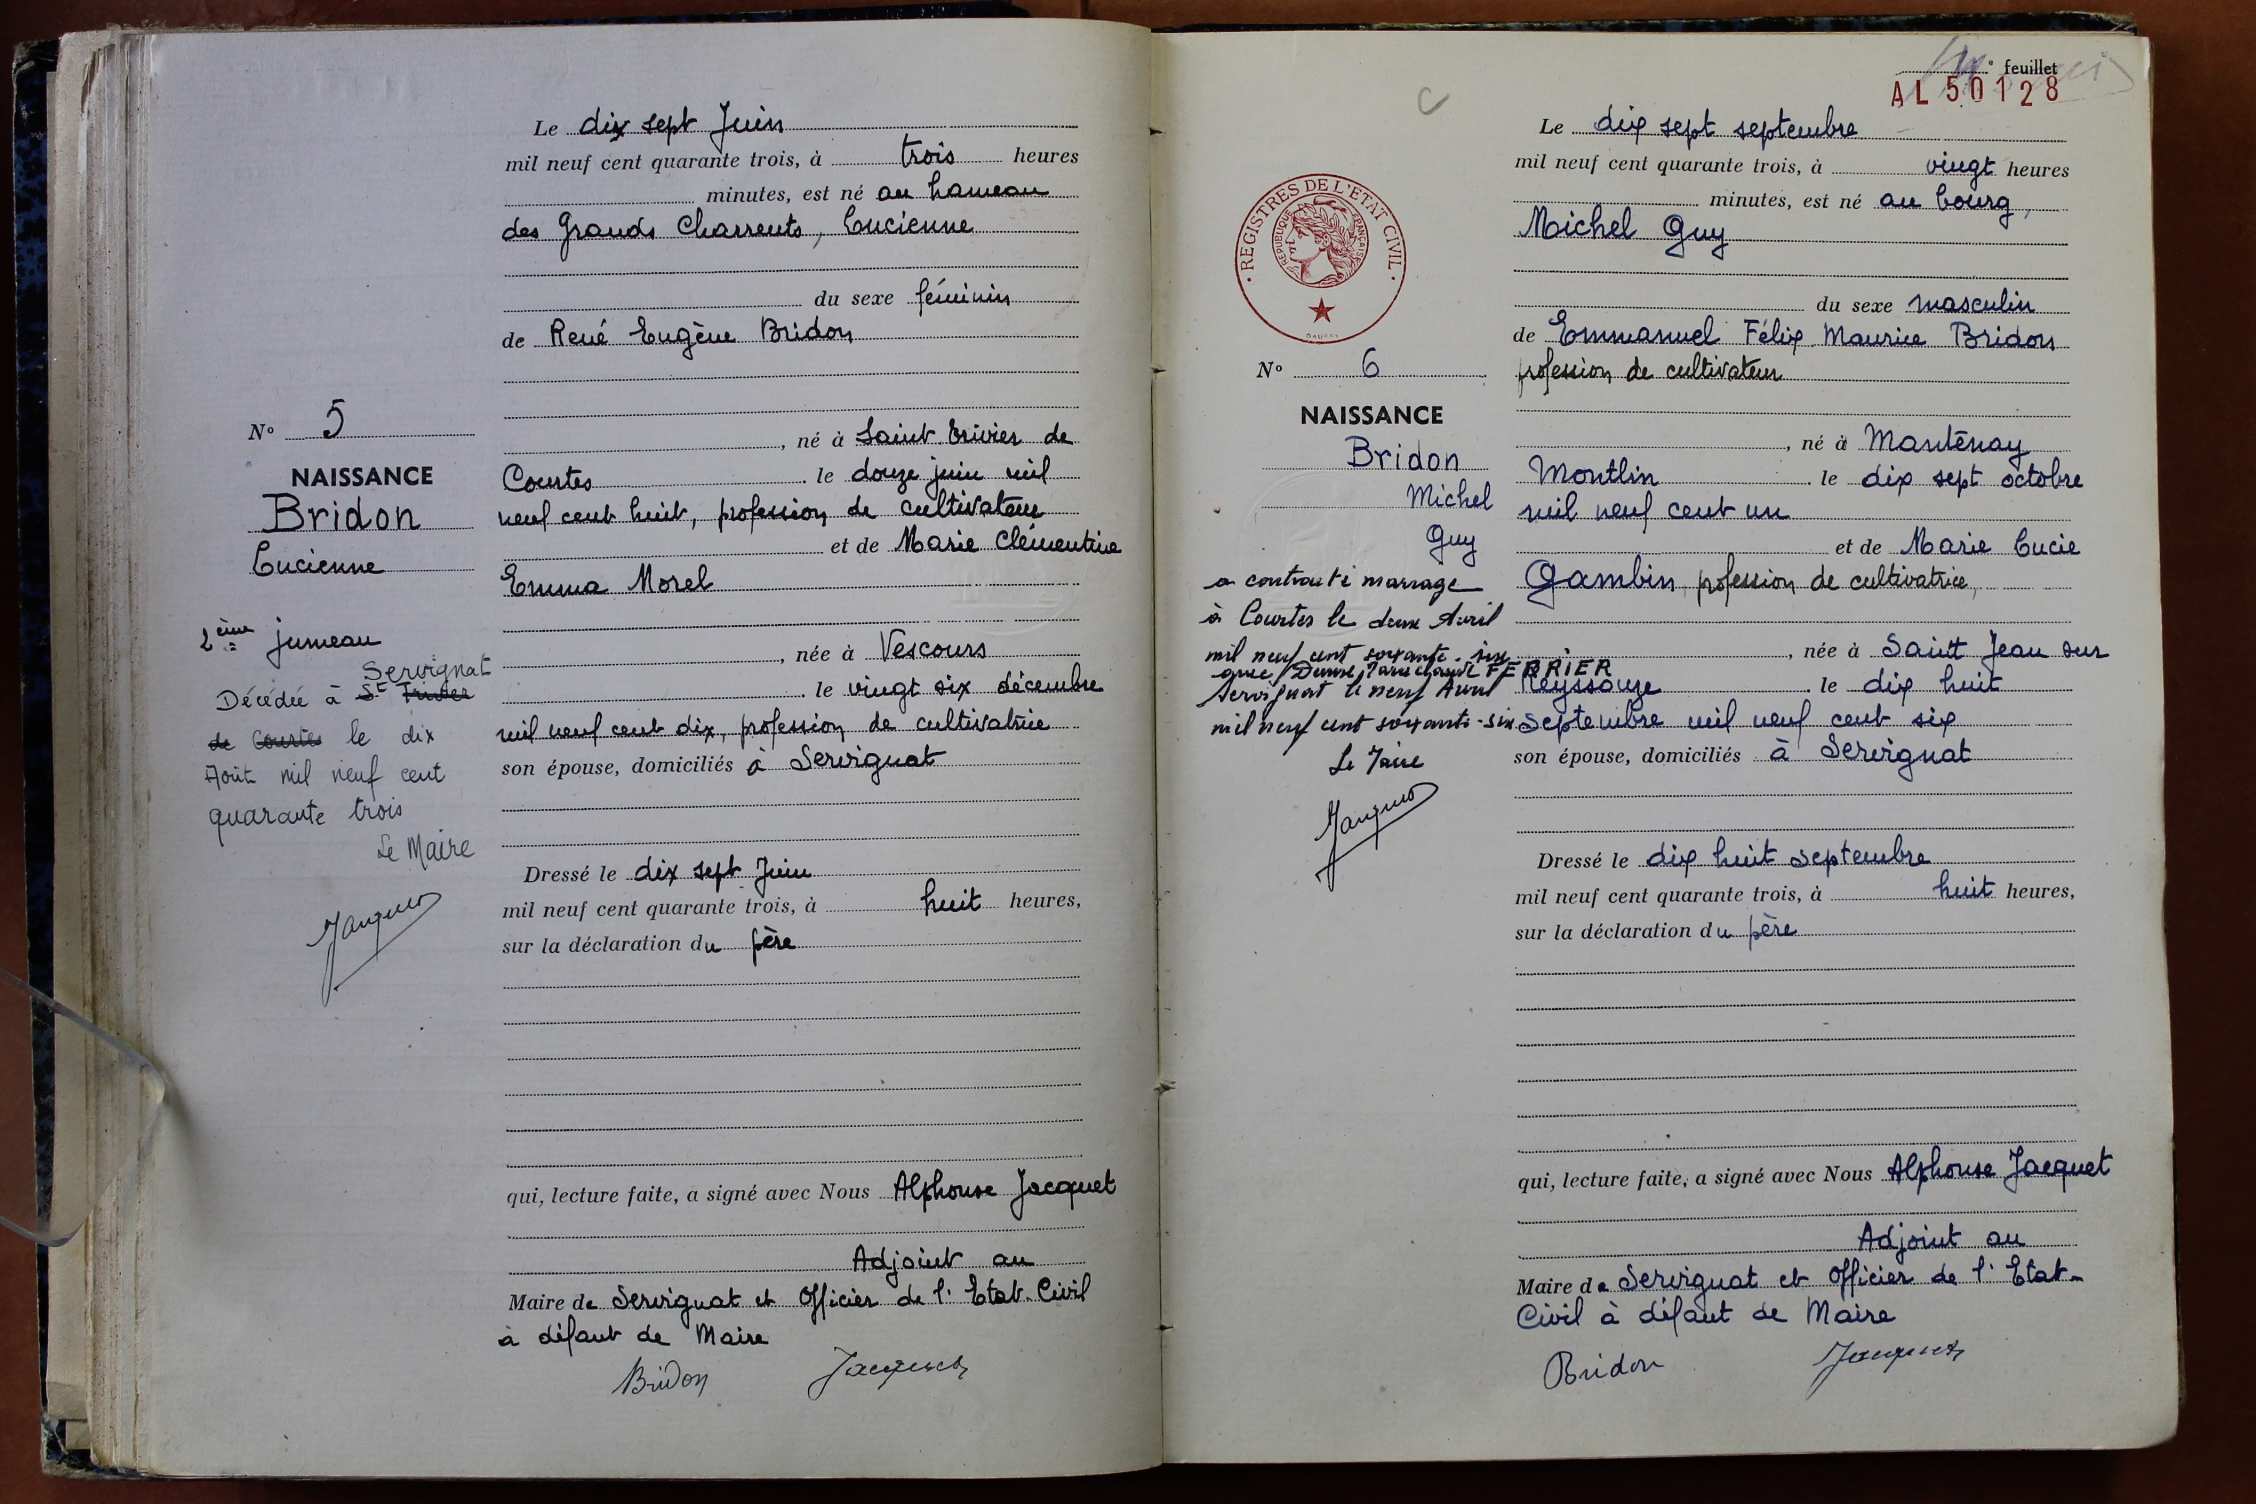 Le dix sept Juin
mil neuf cent quarante trois, à trois heures
minutes, est né au hameau
des Grands Charrents, Lucienne
du sexe féminin
de René Eugène Bridon
, né à Saint Trivier de
Courtes le douze juin mil
neuf cent huit, profession de cultivateur
et de Marie Clémentine
Emma Morel
, née à Vescours
le vingt six décembre
mil neuf cent dix, profession de cultivatrice
son épouse, domiciliés à Servignat
Dressé le dix sept Juin
mil neuf cent quarante trois, à huit heures,
sur la déclaration du père
qui, lecture faite, a signé avec Nous Alphonse Jacquet
Adjoint au
Maire de Servignat et Officier de l'Etat-Civil
à défaut de Maire
Bridon Jacquet
N° 5
NAISSANCE
Bridon
Lucienne
2ème jumeau
Servignat
Décédée à St Trivier
de Courtes le dix
Août mil neuf cent
quarante trois
Le Maire
feuillet
AL 50128
Le dix sept septembre
mil neuf cent quarante trois, à vingt heures
minutes, est né au bourg,
Michel Guy
du sexe masculin
de Emmanuel Félix Maurice Bridon
profession de cultivateur
, né à Mantenay
Montlin le dix sept octobre
mil neuf cent un
et de Marie Lucie
Gambin, profession de cultivatrice,
, née à Saint Jean sur
Reyssouze le dix huit
septembre mil neuf cent six
son épouse, domiciliés à Servignat
Dressé le dix huit septembre
mil neuf cent quarante trois, à huit heures,
sur la déclaration du père
qui, lecture faite, a signé avec Nous Alphonse Jacquet
Adjoint au
Maire de Servignat et Officier de l'Etat-
Civil à défaut de Maire
Bridon Jacquet
REGISTRES DE L'ETAT CIVIL
REPUBLIQUE FRANÇAISE
N° 6
NAISSANCE
Bridon
Michel
Guy
a contracté mariage
à Courtes le deux Avril
mil neuf cent soixante-six
avec Denise Marie Claude FERRIER
Servignat le neuf Avril
mil neuf cent soixante-six
Le Maire